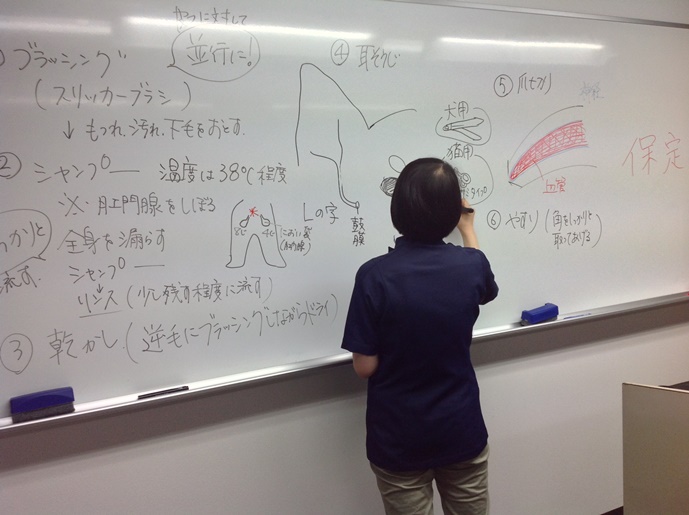 ① ブラッシング
(スリッカーブラシ)
↓ もつれ、汚れ、下毛をおとす.
かつに対して
並行に!
② シャンプー 温度は38℃程度
※ 肛門腺をしぼる
全身を濡らす
シャンプー
↓
リンス (少し残す程度に流す)
っかりと
流す.
8じ 4じ
におい袋
(肛門腺)
③ 乾かし.(逆毛にブラッシングしながらドライ)
④ 耳そうじ
Lの字
鼓膜
犬用
猫用
⑤ 爪切り
血管
⑥ やすり (角をしっかりと
取ってあげる)
保定